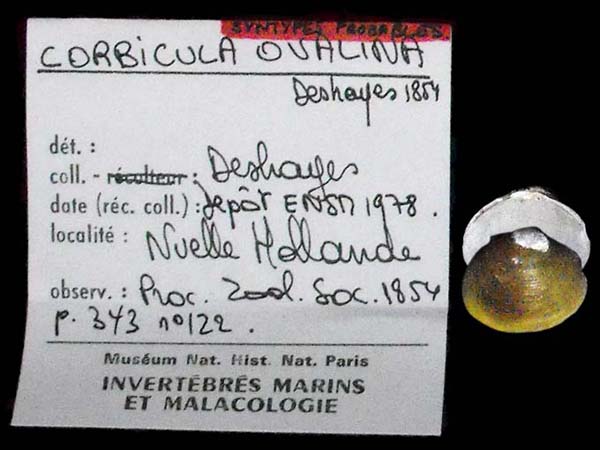 SYNTYPES PROBABLES
CORBICULA OVALINA
Deshayes 1854
dét. :
coll. - récolteur : Deshayes
date (réc. coll.) : dépôt ENSM 1978.
localité : Nuelle Hollande
observ. : Proc. Zool. Soc. 1854
p. 343 n° 122.
Muséum Nat. Hist. Nat. Paris
INVERTÉBRÉS MARINS
ET MALACOLOGIE